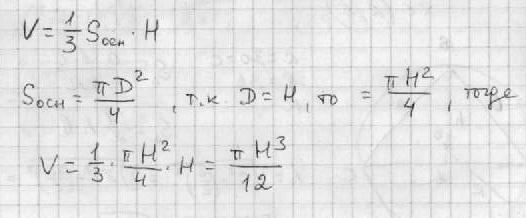 V = 1/3 Sосн · H
Sосн = πD²/4, т.к. D = H, то = πH²/4, тогда
V = 1/3 · πH²/4 · H = πH³/12